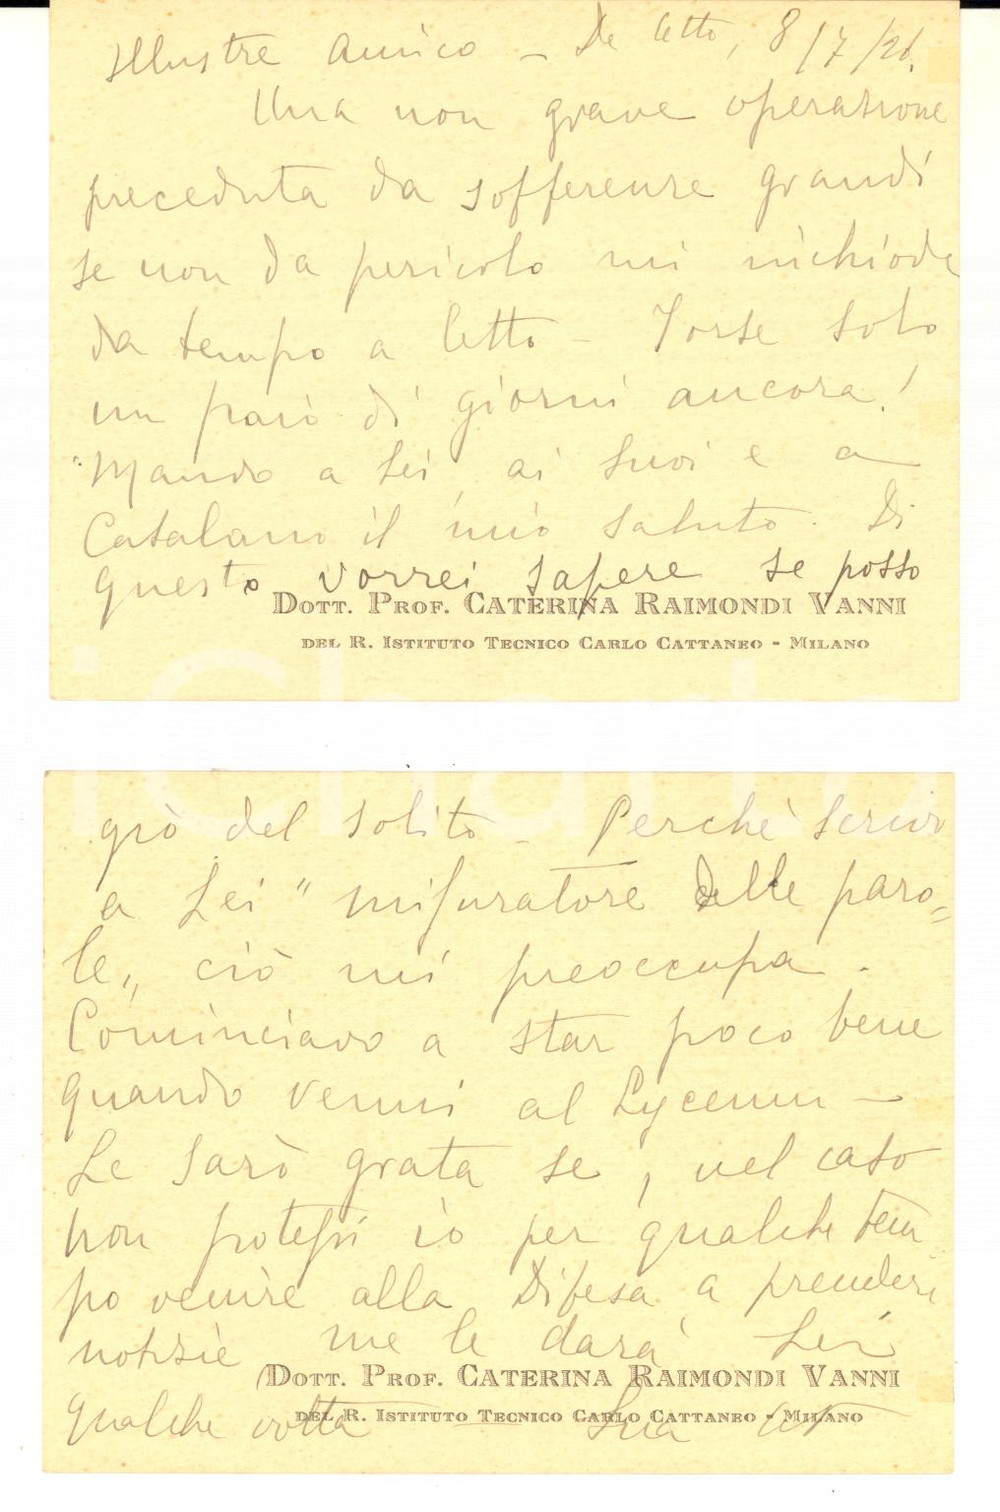 Illustre Amico – Da letto, 8/7/21.
Una non grave operazione
preceduta da sofferenze grandi
se non da pericolo mi inchioda
da tempo a letto – Forse solo
un paio di giorni ancora!
Mando a Lei, ai suoi e a
Catalano il mio saluto. Di
questo vorrei sapere se posso
DOTT. PROF. CATERINA RAIMONDI VANNI
DEL R. ISTITUTO TECNICO CARLO CATTANEO - MILANO
giò del solito – Perchè scrivo
a Lei "misuratore delle paro=
le„ ciò mi preoccupa.
Cominciavo a star poco bene
quando venni al Lyceum –
Le sarò grata se, nel caso
non potessi io per qualche tem
po venire alla Difesa a prendere
notizie me le darà Lei
DOTT. PROF. CATERINA RAIMONDI VANNI
DEL R. ISTITUTO TECNICO CARLO CATTANEO - MILANO
qualche volta Sua